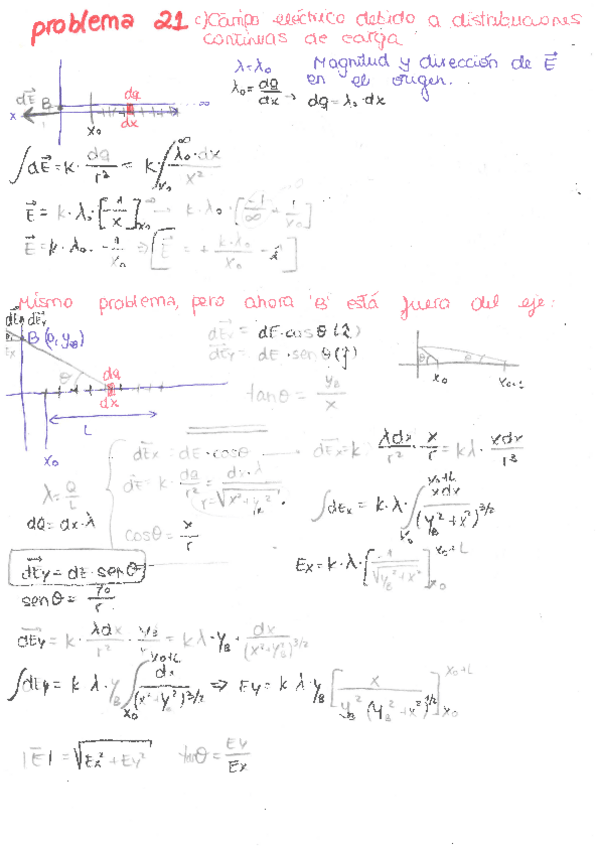 problema 21 c) Campo eléctrico debido a distribuciones
continuas de carga
λ = λ₀ Magnitud y dirección de E⃗
en el origen...
λ₀ = dQ/dx → dQ = λ₀·dx
dE⃗ B dq ∞
x x₀ dx
∫dE⃗ = k·dq/r² = k∫_{x₀}^{∞} λ₀·dx/x²
E⃗ = k·λ₀·[-1/x]_{x₀}^{∞} → k·λ₀·[-1/∞ + 1/x₀]
E⃗ = k·λ₀· -1/x₀ ⇒ [E⃗ = + k·λ₀/x₀ -i]
Mismo problema, pero ahora 'B' está fuera del eje:
dE⃗ dE⃗y
B(0, yB)
Ex
dE⃗x = dE·cosθ(î)
dE⃗y = dE·senθ(ĵ)
tanθ = yB/x
θ dq
dx
L
x₀
θ θ
x₀
dE⃗x = dE·cosθ → dE⃗x = k λdx/r² · x/r = kλ· xdx/r³
dE⃗ = k·dq/r² = dx·λ
r = √(x²+yB²)
λ = Q/L
dQ = dx·λ
cosθ = x/r
∫dEx = k·λ·∫_{x₀}^{x₀+L} xdx/(yB²+x²)^{3/2}
Ex = k·λ·[-1/√(yB²+x²)]_{x₀}^{x₀+L}
dE⃗y = dE·senθ
senθ = y₀/r
dE⃗y = k· λdx/r² · yB/r = kλ·yB· dx/(x²+yB²)^{3/2}
∫dEy = k λ·yB ∫_{x₀}^{x₀+L} dx/(x²+y²)^{3/2} ⇒ Ey = kλ·yB [x/(yB²(yB²+x²)^{1/2})]_{x₀}^{x₀+L}
|E⃗| = √(Ex²+Ey²) tanθ = Ey/Ex